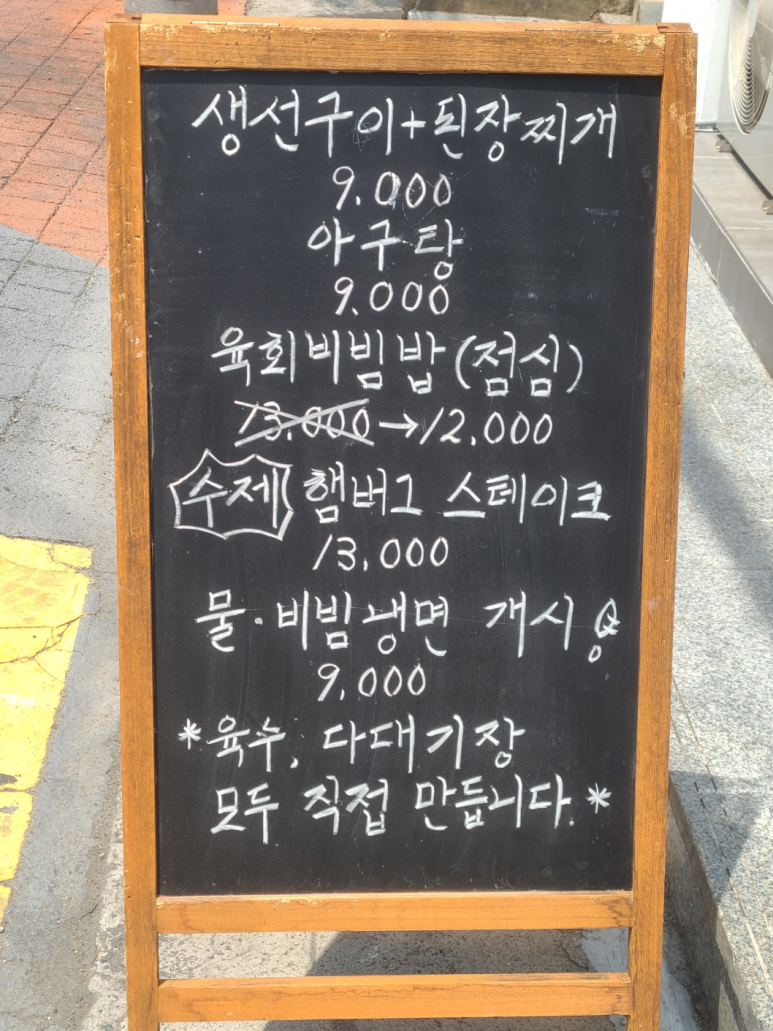 생선구이+된장찌개
9.000
아구탕
9.000
육회비빔밥(점심)
13.000→12.000
수제 햄버그 스테이크
13.000
물·비빔냉면 개시
9,000
*육수, 다대기장
모두 직접 만듭니다.*